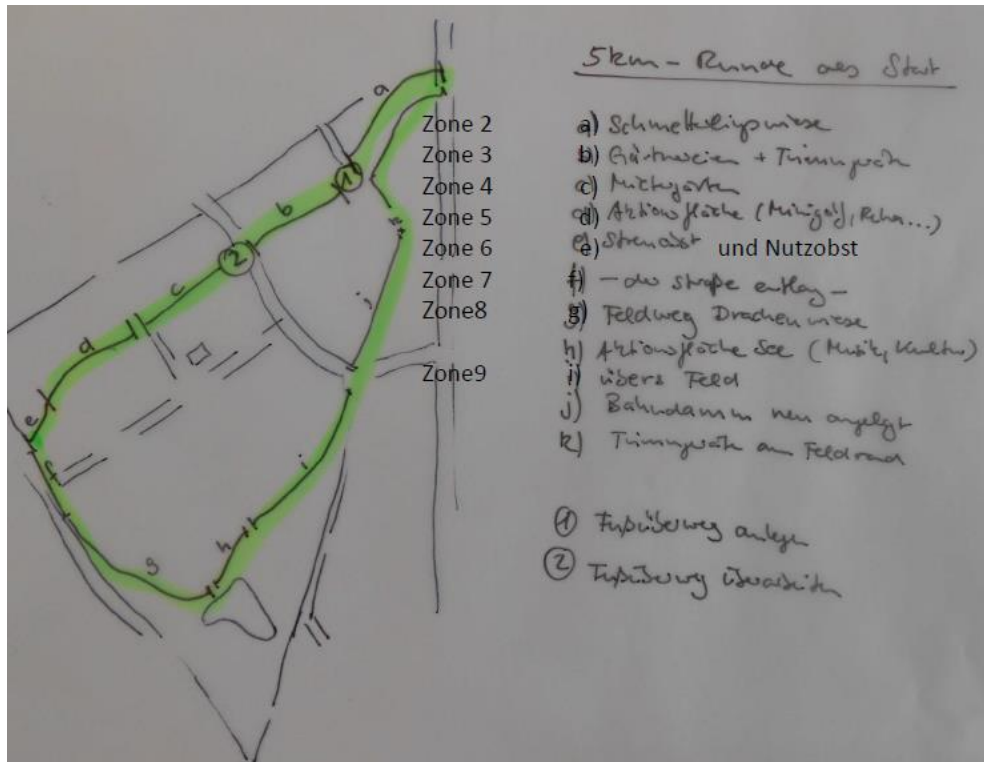 5km-Runde als Start
a
1
b
2
c
d
e
f
g
h
i
j
Zone 2
Zone 3
Zone 4
Zone 5
Zone 6
Zone 7
Zone8
Zone9
a) Schmetterlingswiese
b) Gärtnereien + Trimmgeräte
c) Mietgärten
d) Aktionsfläche (Minigolf, Reha...)
e) Streuobst und Nutzobst
f) - der Straße entlang -
g) Feldweg Drachenwiese
h) Aktionsfläche See (Musik, Kultur)
i) übers Feld
j) Bahndamm neu angelegt
k) Trimmgeräte am Feldrand
1 Fußüberweg anlegen
2 Fußüberweg überarbeiten